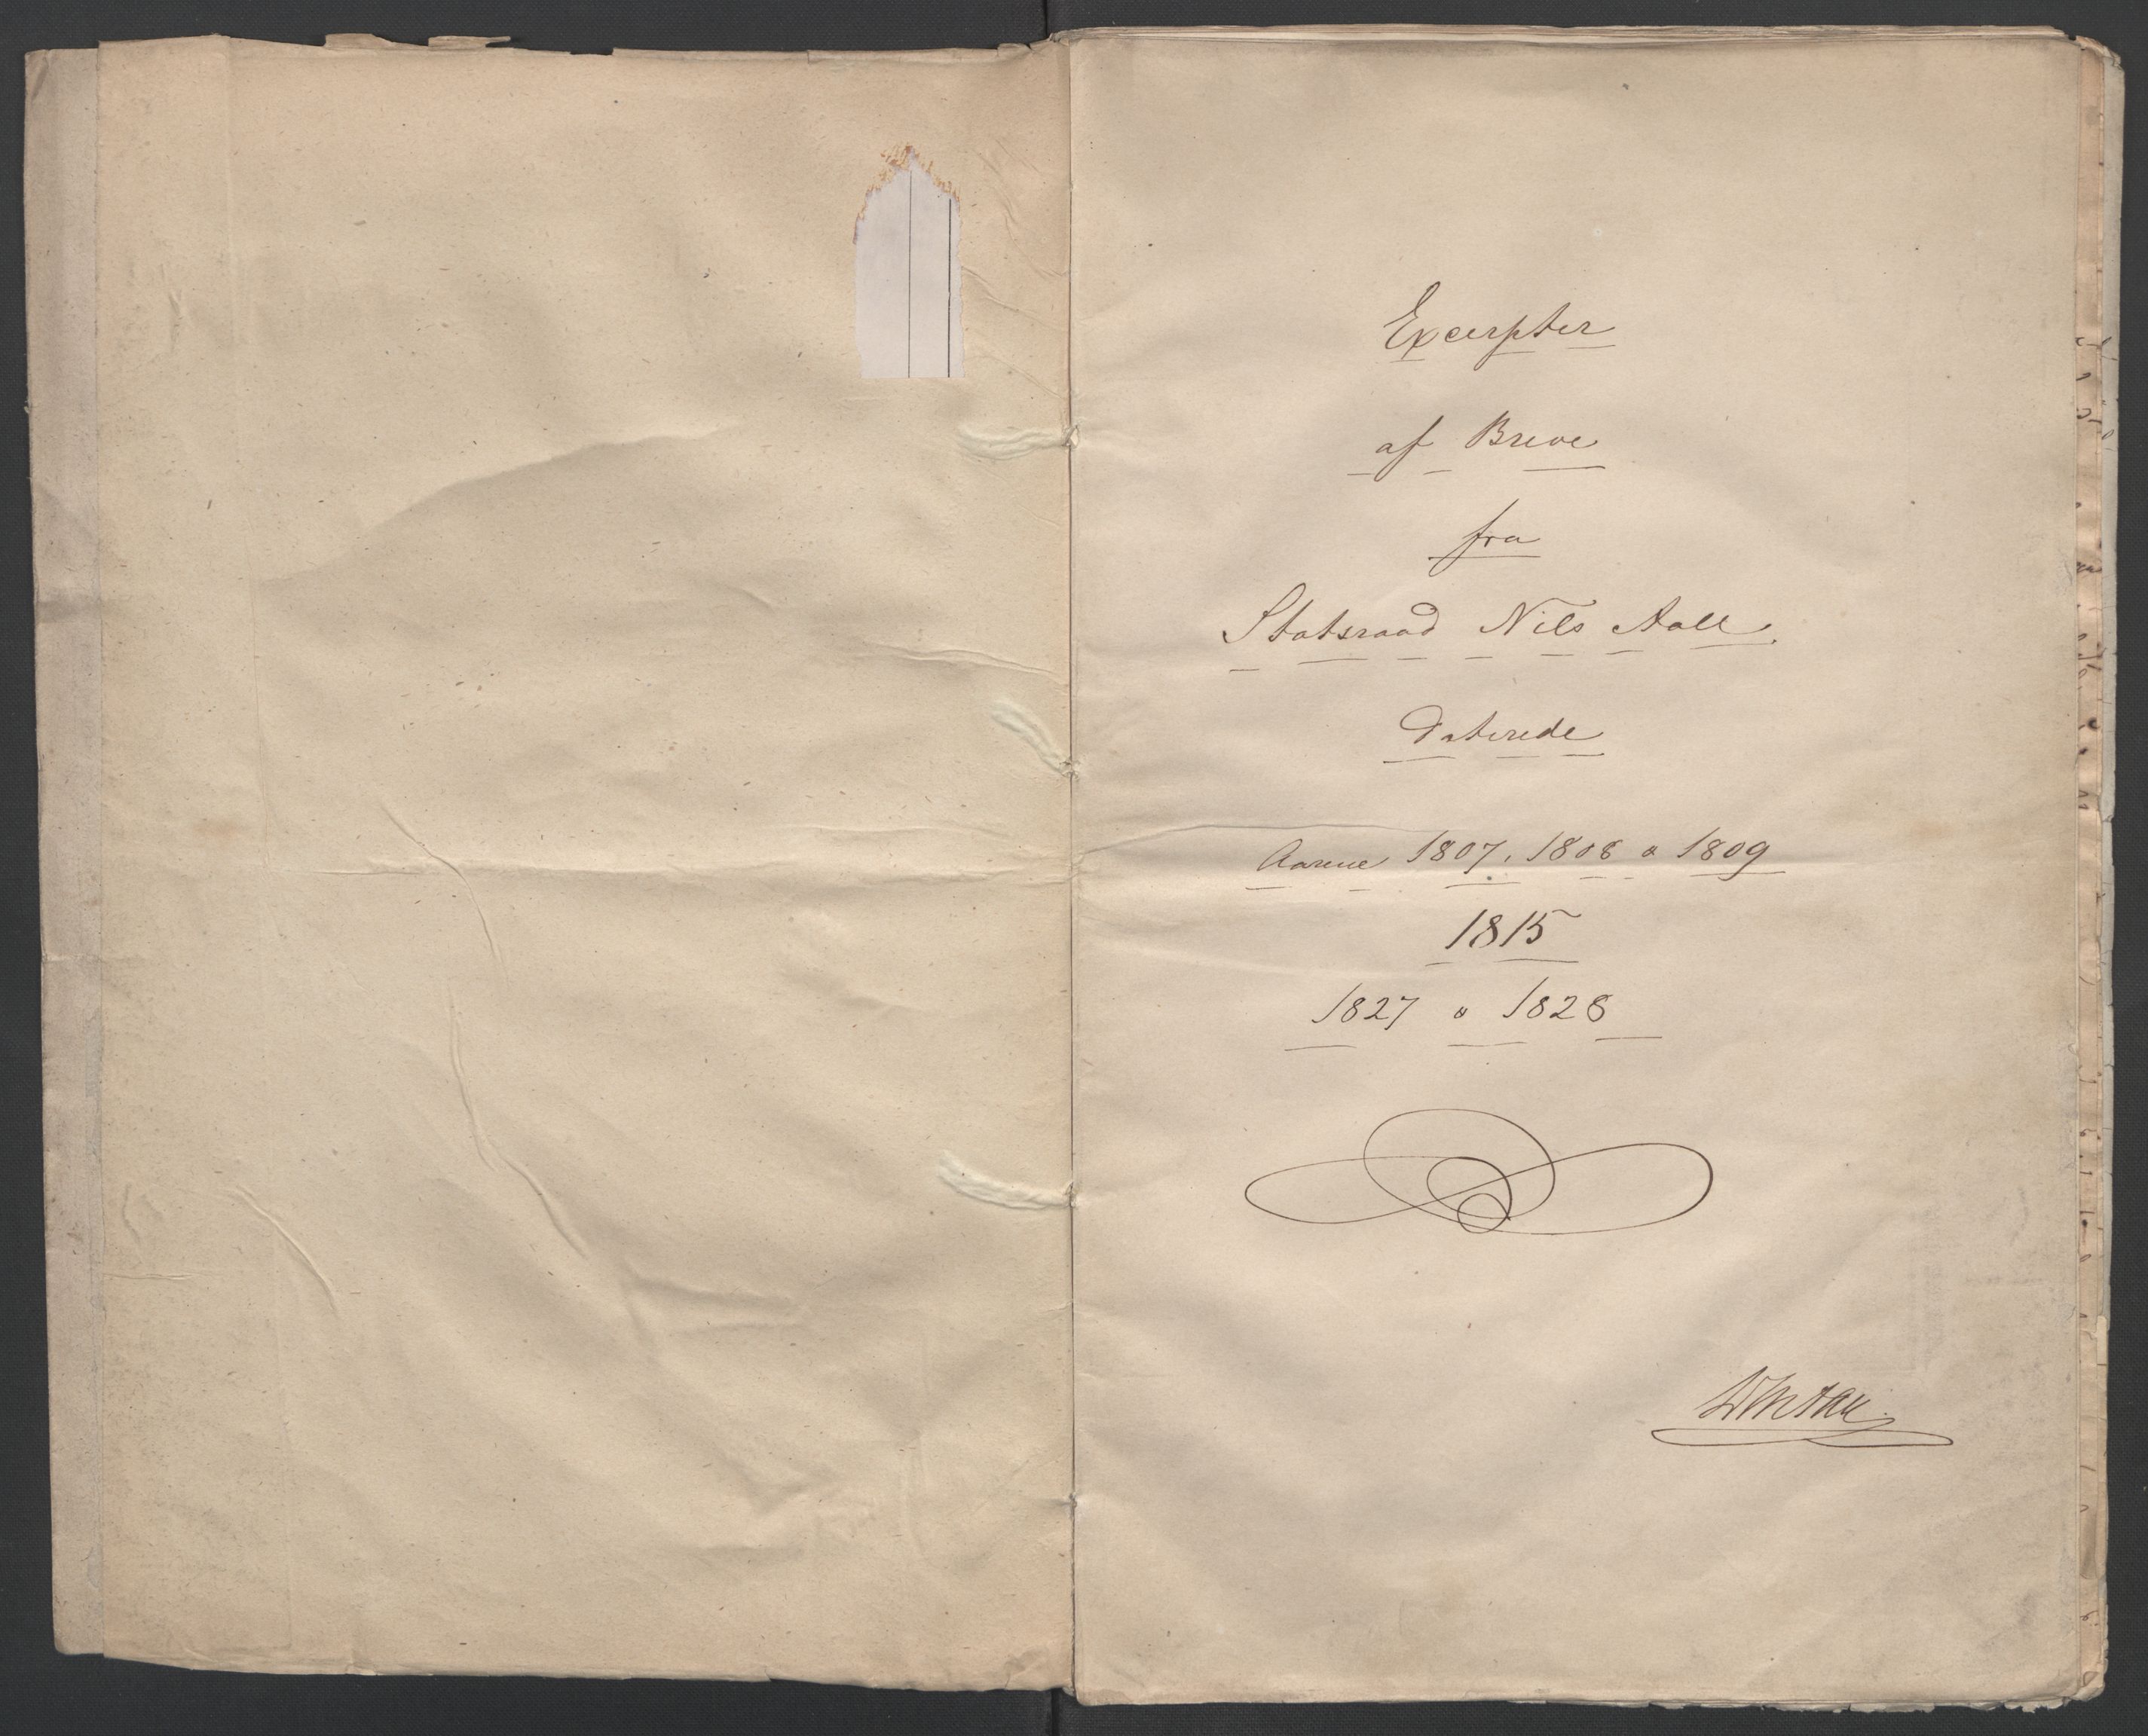 Excerpter
af Breve
fra
Statsraad Nils Aall.
Daterede
Aarene 1807, 1808 o 1809
1815
1827 o 1828